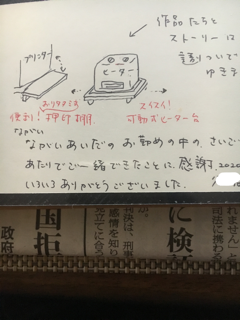 作品たちと
ストーリーは
ついで
ゆきま
プリンター
ヒーター
おりたたみ
便利! 押印棚
スイスイ!
可動式ヒーター台
ながい
ながいあいだの お勤めの中の、さいご
あたりでご一緒できたことに、感謝 2020
いろいろ ありがとうございました。
国拒
政府
決は、刑事
感情を知り
立てに合う
に検討
れません」と
司法に携わる